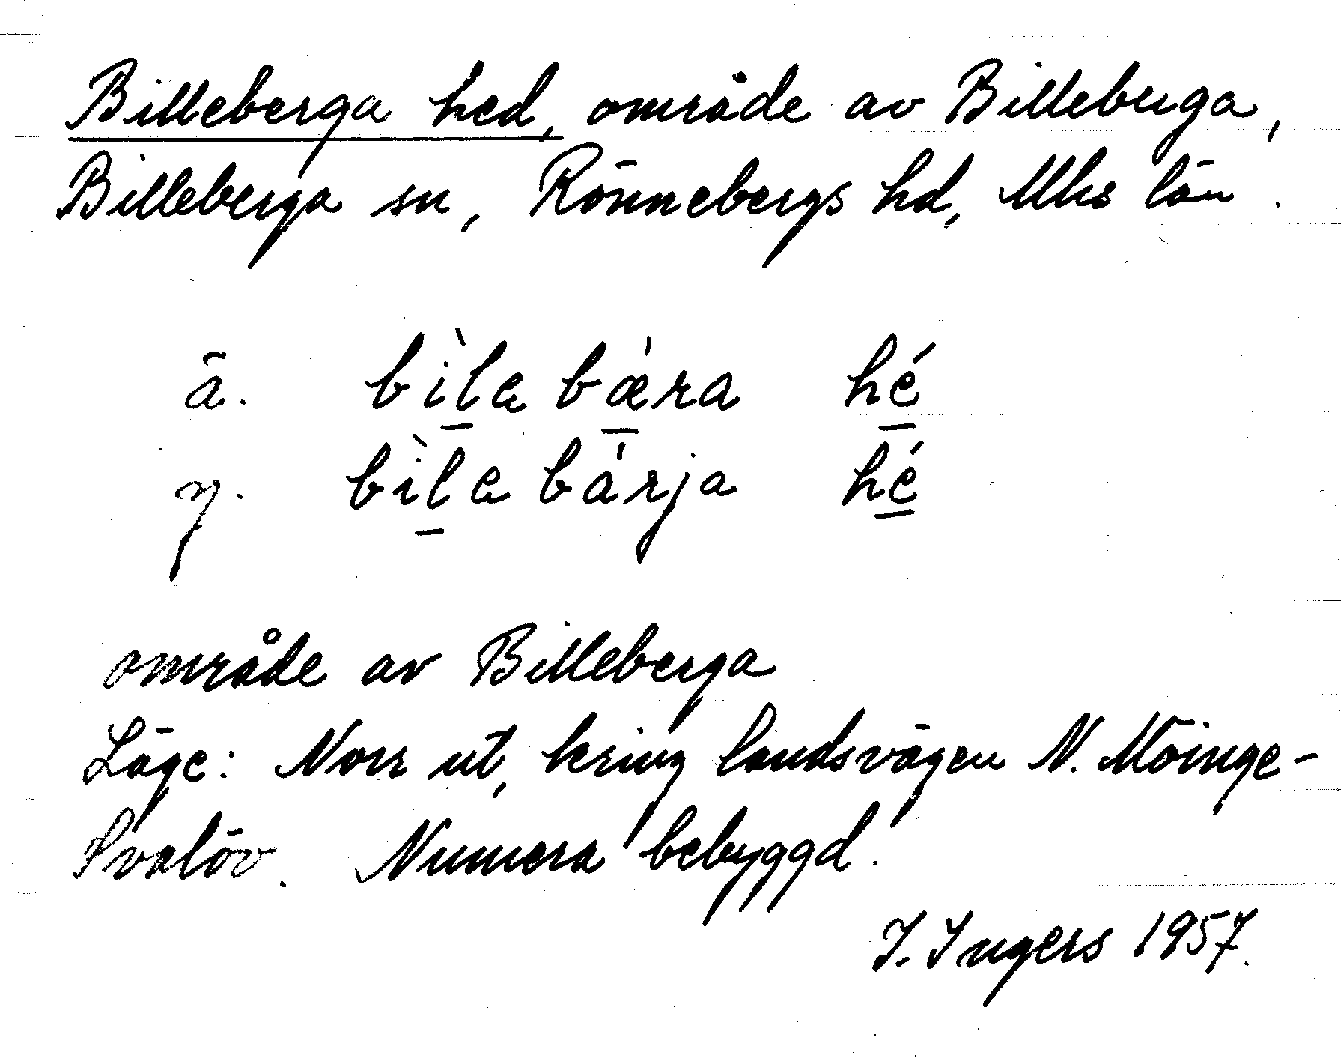 Billeberga hed, område av Billeberga,
Billeberga sn, Rönnebergs hd, Mhs län.
ä. bìla bæ̀ra hé
y. bìla bárja hé
område av Billeberga
Läge: Norr ut, kring landsvägen N. Möinge-
Svalöv. Numera bebyggd.
I. Ingers 1957.